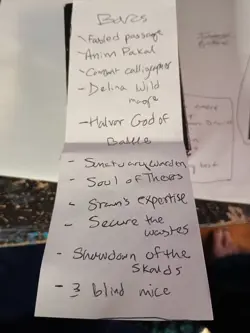 Bars
- Fabled passage
- Anim Pakal
- Constant calligrapher
- Delina Wild
mage
- Halvor God of
Battle
- Sanctuary warden
- Soul of Theros
- Sram's expertise
- Secure the
wastes
- Showdown of the
Skalds
- 3 blind mice